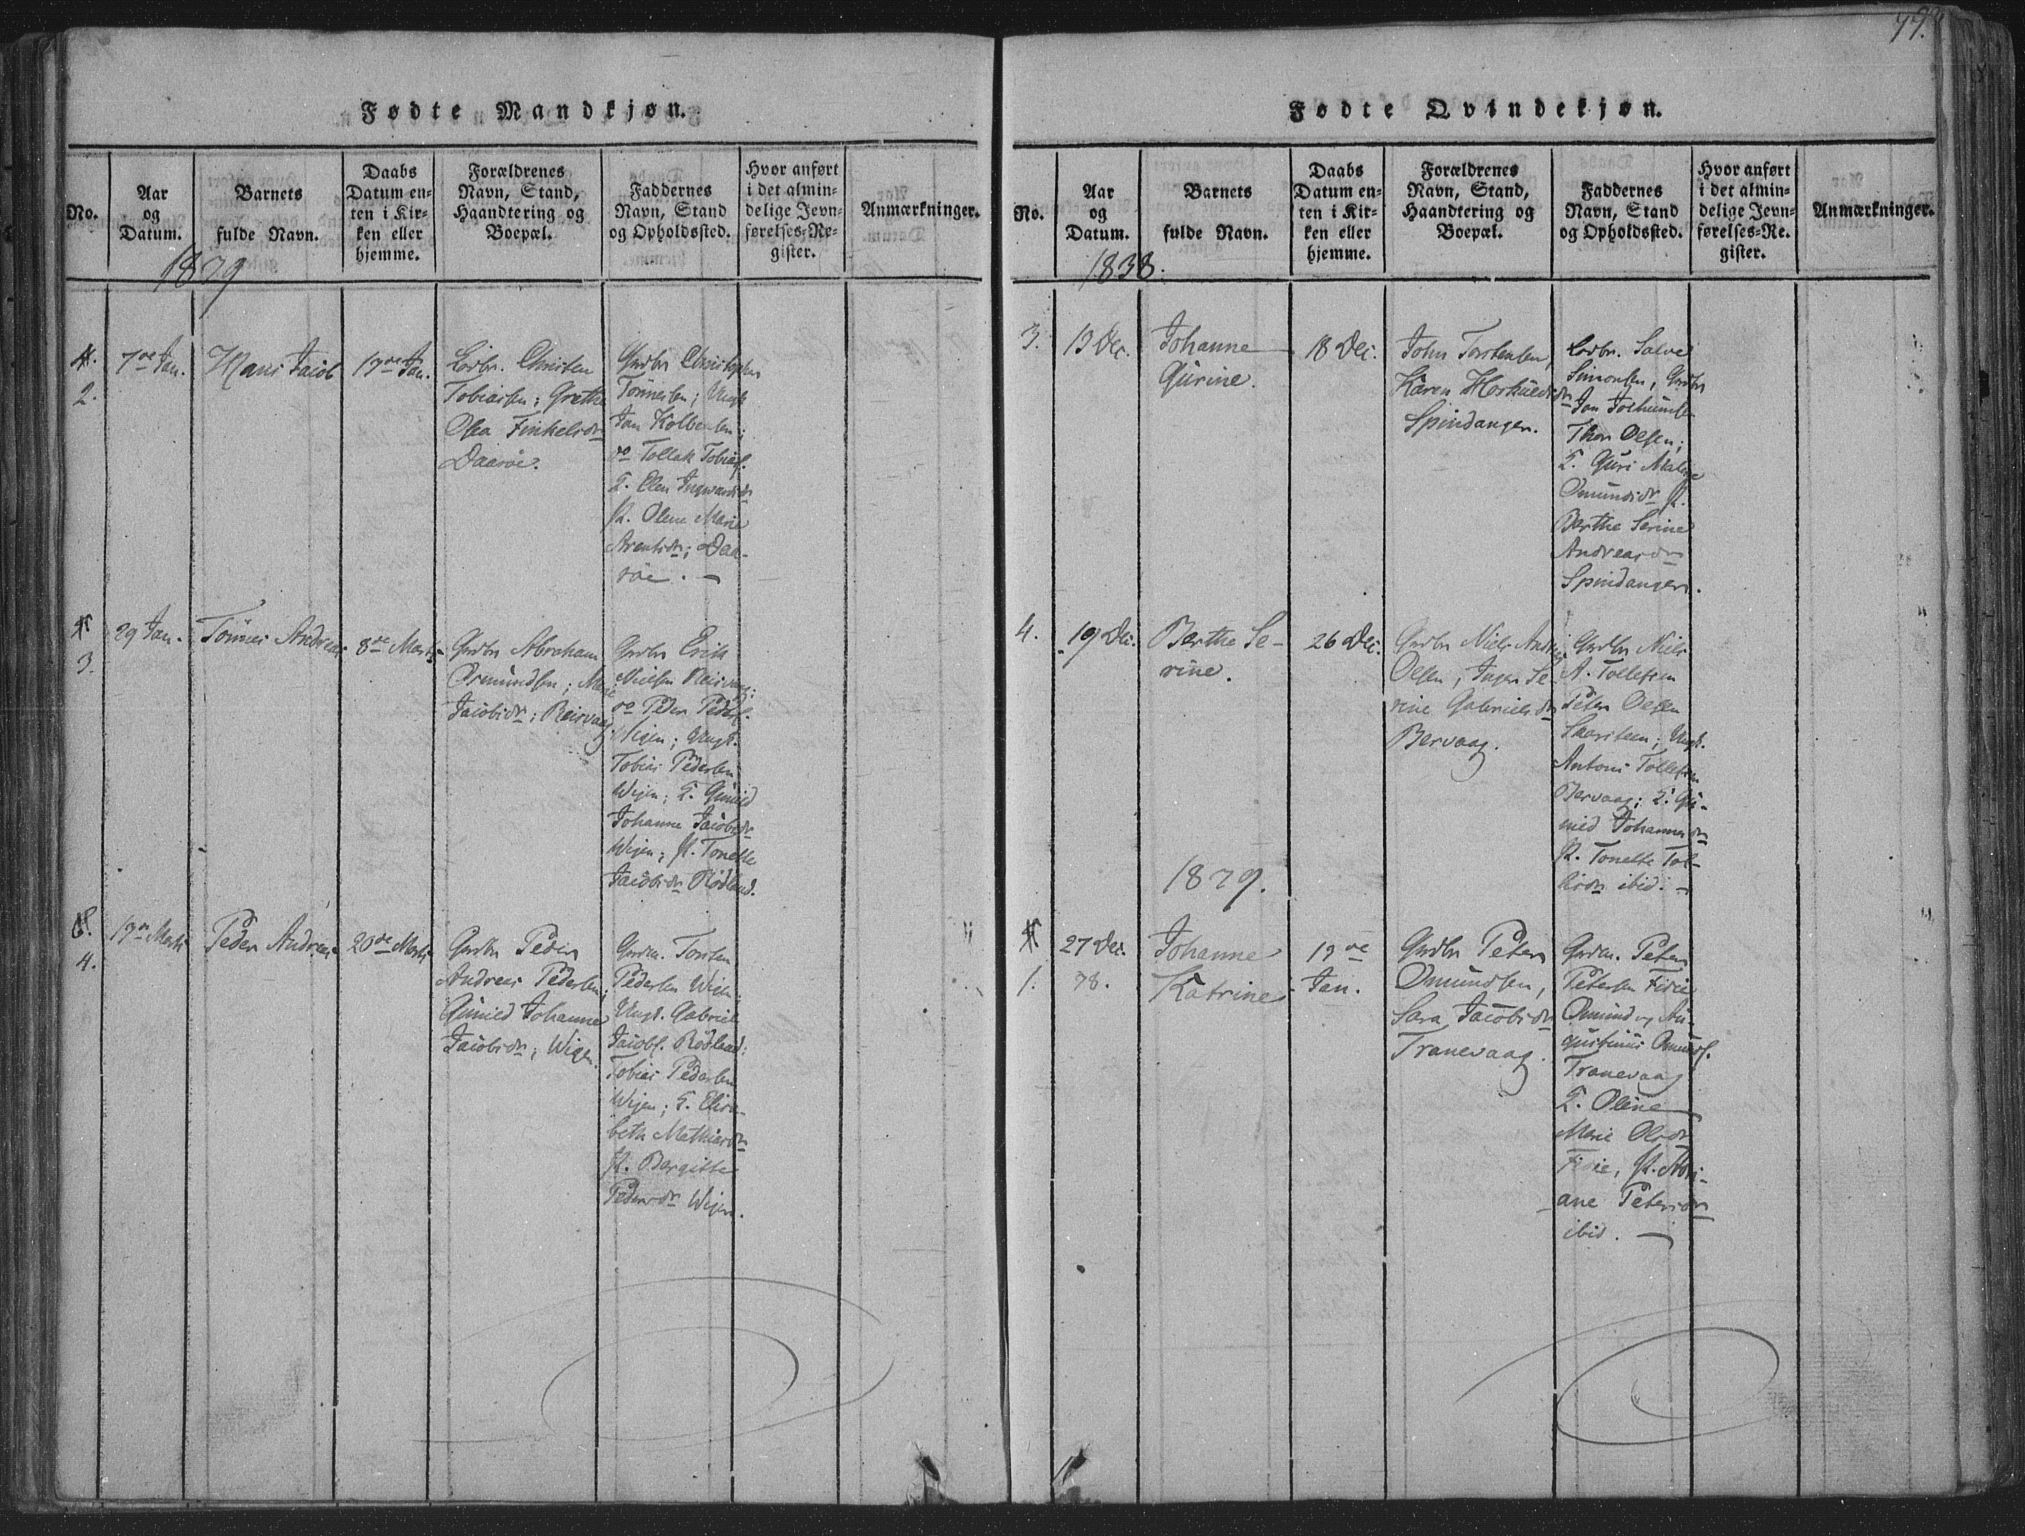 79.
Fødte Mandkjøn.
No.
Aar
og
Datum.
Barnets
fulde Navn.
Daabs
Datum en-
ten i Kir-
ken eller
hjemme.
Forældrenes
Navn, Stand,
Haandtering og
Boepæl.
Faddernes
Navn, Stand
og Opholdssted.
Hvor anført
i det almin-
delige Jevn-
førelses-Re-
gister.
Anmærkninger.
1839
2.
7de Jan.
Hans Jacob
13de Jan.
Christen
Tobiassen; Grethe
Olea Finkelsdr
Daarøe.
Grdbr Christopher
Tønnessen; Ungk.
Jan Kolbensen;
do Tollak Tobiasf.
Q. Elen Ingwardsdr
P. Olene Marie
Arentsdr; Daa-
røe. —
3.
29 Jan.
Tønnes Andreas
8de Marts
Grdbr Abraham
Osmundsen; Marie
Jacobsdr; Reisvaag
Grdbr Erich
Nielsen Reisvaag;
do Peder Pedersf.
Wigen; Ungk.
Tobias Pedersen
Wigen; Q. Gunild
Johanne Jacobsdr
Wigen; P. Tonette
Jacobsdr Rødland.
4.
17de Marts
Peder Andreas
20de Marts
Grdbr Peder
Andreas Pedersen;
Gunild Johanne
Jacobsdr; Wigen.
Grdm. Torsten
Pedersen Wigen;
Ungk. Gabriel
Jacobf. Rødland;
Tobias Pedersen
Wigen; Q. Elisa-
beth Mathiasdr
P. Bergitte
Pedersdr Wigen.
Fødte Qvindekjøn.
No.
Aar
og
Datum.
Barnets
fulde Navn.
Daabs
Datum en-
ten i Kir-
ken eller
hjemme.
Forældrenes
Navn, Stand,
Haandtering og
Boepæl.
Faddernes
Navn, Stand
og Opholdssted.
Hvor anført
i det almin-
delige Jevn-
førelses-Re-
gister.
Anmærkninger.
1838.
3.
13 Dec.
Johanne
Gurine.
18 Dec.
John Torstensen,
Karen Hoskuldsdr
Spindanger.
Salve
Simonsen, Grdbr
Jan Jochumsen
Thor Olsen;
Q. Guri Malene
Omundsdr P.
Berthe Serine
Andreasdr
Spindanger.
4.
19 Dec.
Berthe Se-
rine.
26 Dec.
Grdbr Niels Andreas
Olsen, Inger Se-
rine Gabrielsdr
Bervaag.
Grdbr Niels
A. Tollefsen
Peter Olsen
Ungk.
Antoni Tollefsen
Bervaag; Q. Gu-
nild Johannesdr
P. Tonette Tol-
lefsdr ibid. —
1839.
1.
27 Dec.
38.
Johanne
Katrine
13de
Jan.
Grdbr Peter
Omundsen,
Sara Jacobsdr
Tranevaag.
Grdm. Peter
Petersen Fidie
Omund og Au-
gustinus Omundsf.
Tranevaag
Q. Oline
Marie Olsdr
Fidie, P. Adri-
ane Petersdr
ibid. —